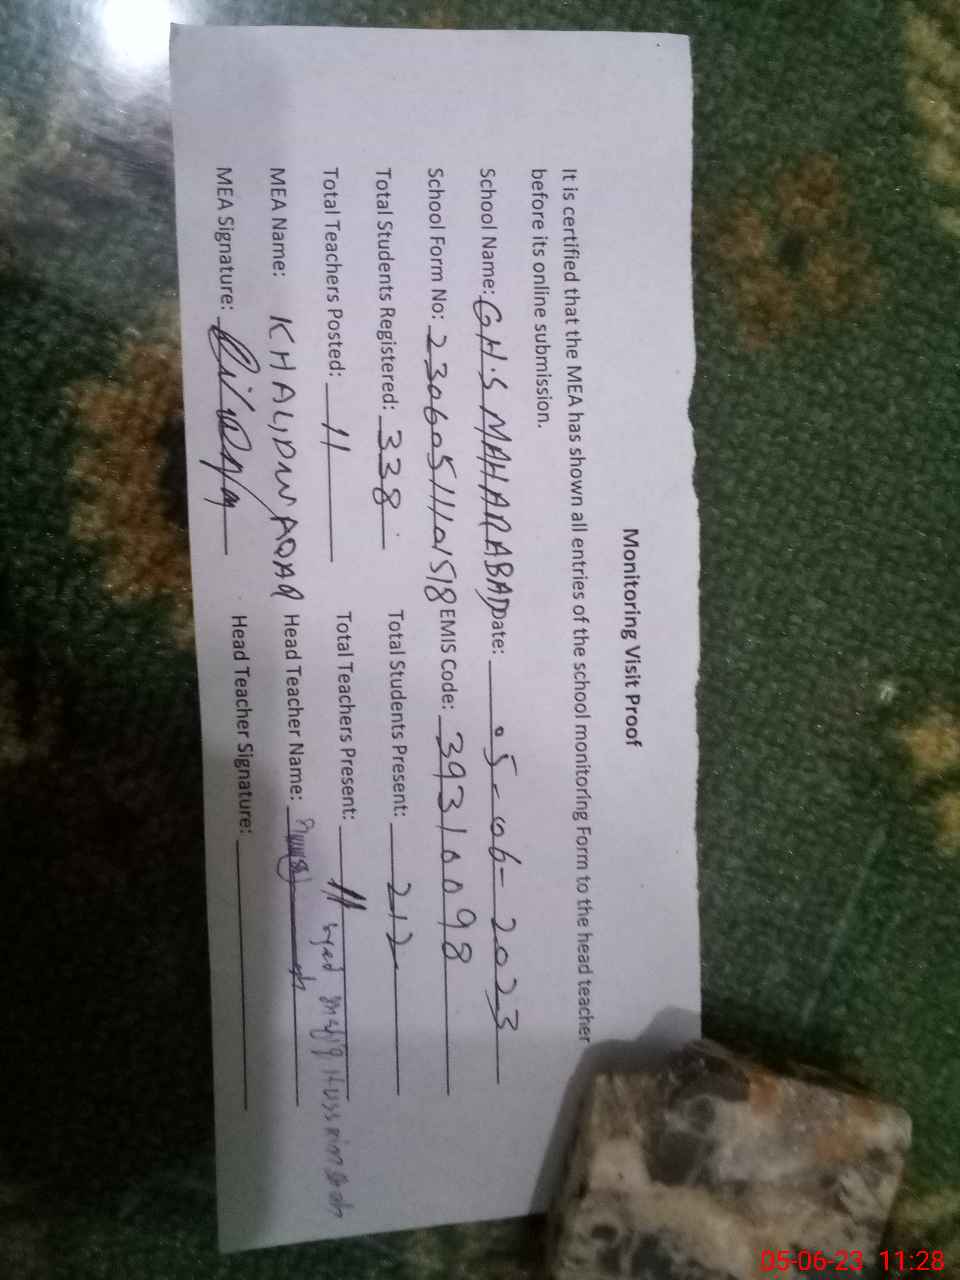 Monitoring Visit Proof
It is certified that the MEA has shown all entries of the school monitoring Form to the head teacher
before its online submission.
School Name: GH.S MAHARABAD Date: 05-06-2023
School Form No: EMIS Code: 39310098
Total Students Registered: 338 Total Students Present: 212
Total Teachers Posted: 11 Total Teachers Present: 11
MEA Name: KHALID Head Teacher Name:
MEA Signature: Head Teacher Signature:
05-06-23 11:28